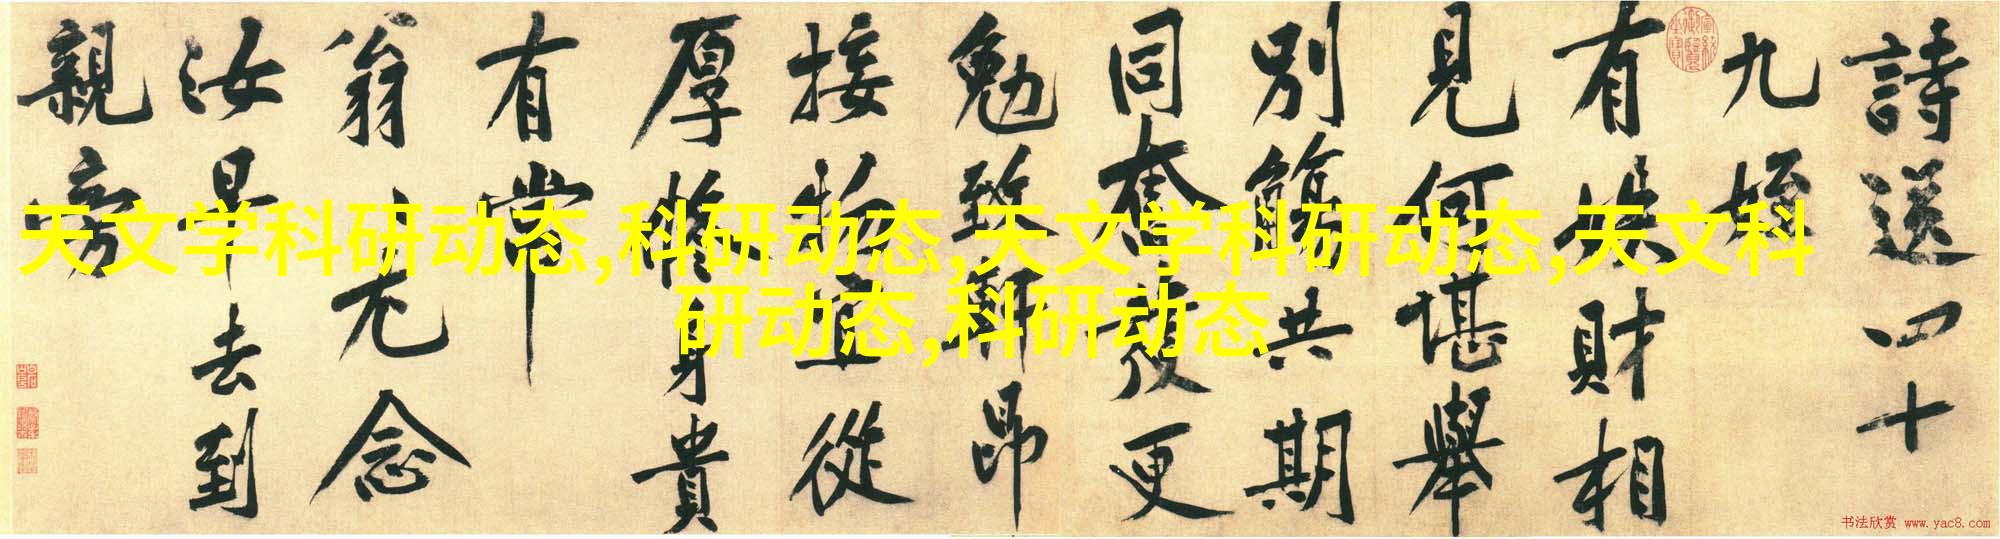 詩送四十
九姪
有財相
見何堪舉
別觴共期
同奮發更
勉致軒昂
接物宜從
厚身貴
有常
翁尤念
汝早去到
親旁
天文学科研动态,科研动态,天文学科研动态,天文科
研动态,科研动态
书法欣赏 www.yac8.com